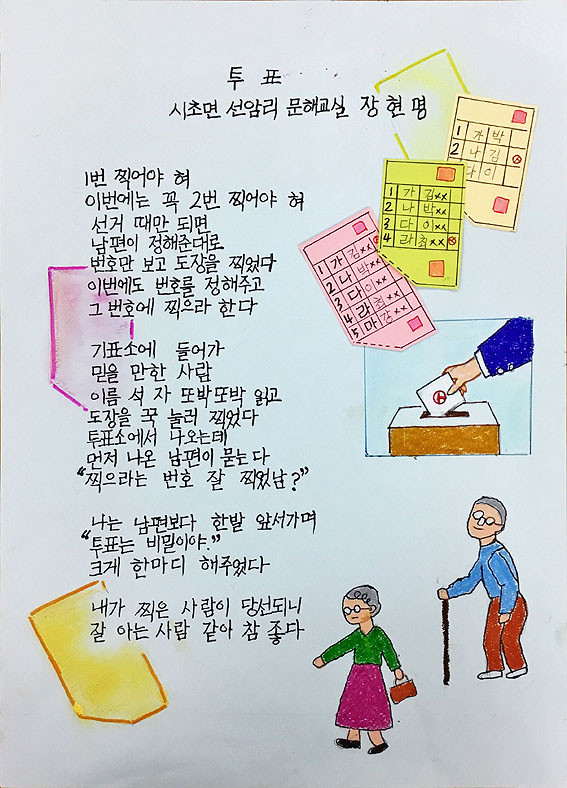 투 표
시초면 선암리 문해교실 장현명
1번 찍어야 혀
이번에는 꼭 2번 찍어야 혀
선거 때만 되면
남편이 정해준대로
번호만 보고 도장을 찍었다
이번에도 번호를 정해주고
그 번호에 찍으라 한다
기표소에 들어가
믿을 만한 사람
이름 석 자 또박또박 읽고
도장을 꾹 눌러 찍었다
투표소에서 나오는데
먼저 나온 남편이 묻는다
“찍으라는 번호 잘 찍었남?”
나는 남편보다 한발 앞서가며
“투표는 비밀이야.”
크게 한마디 해주었다
내가 찍은 사람이 당선되니
잘 아는 사람 같아 참 좋다
1 가 박
2 나 김
다 이
1 가 김xx
2 나 박xx
3 다 이xx
4 라 최xx
1 가 김xx
2 나 박xx
3 다 이xx
4 라 최xx
5 마 강xx